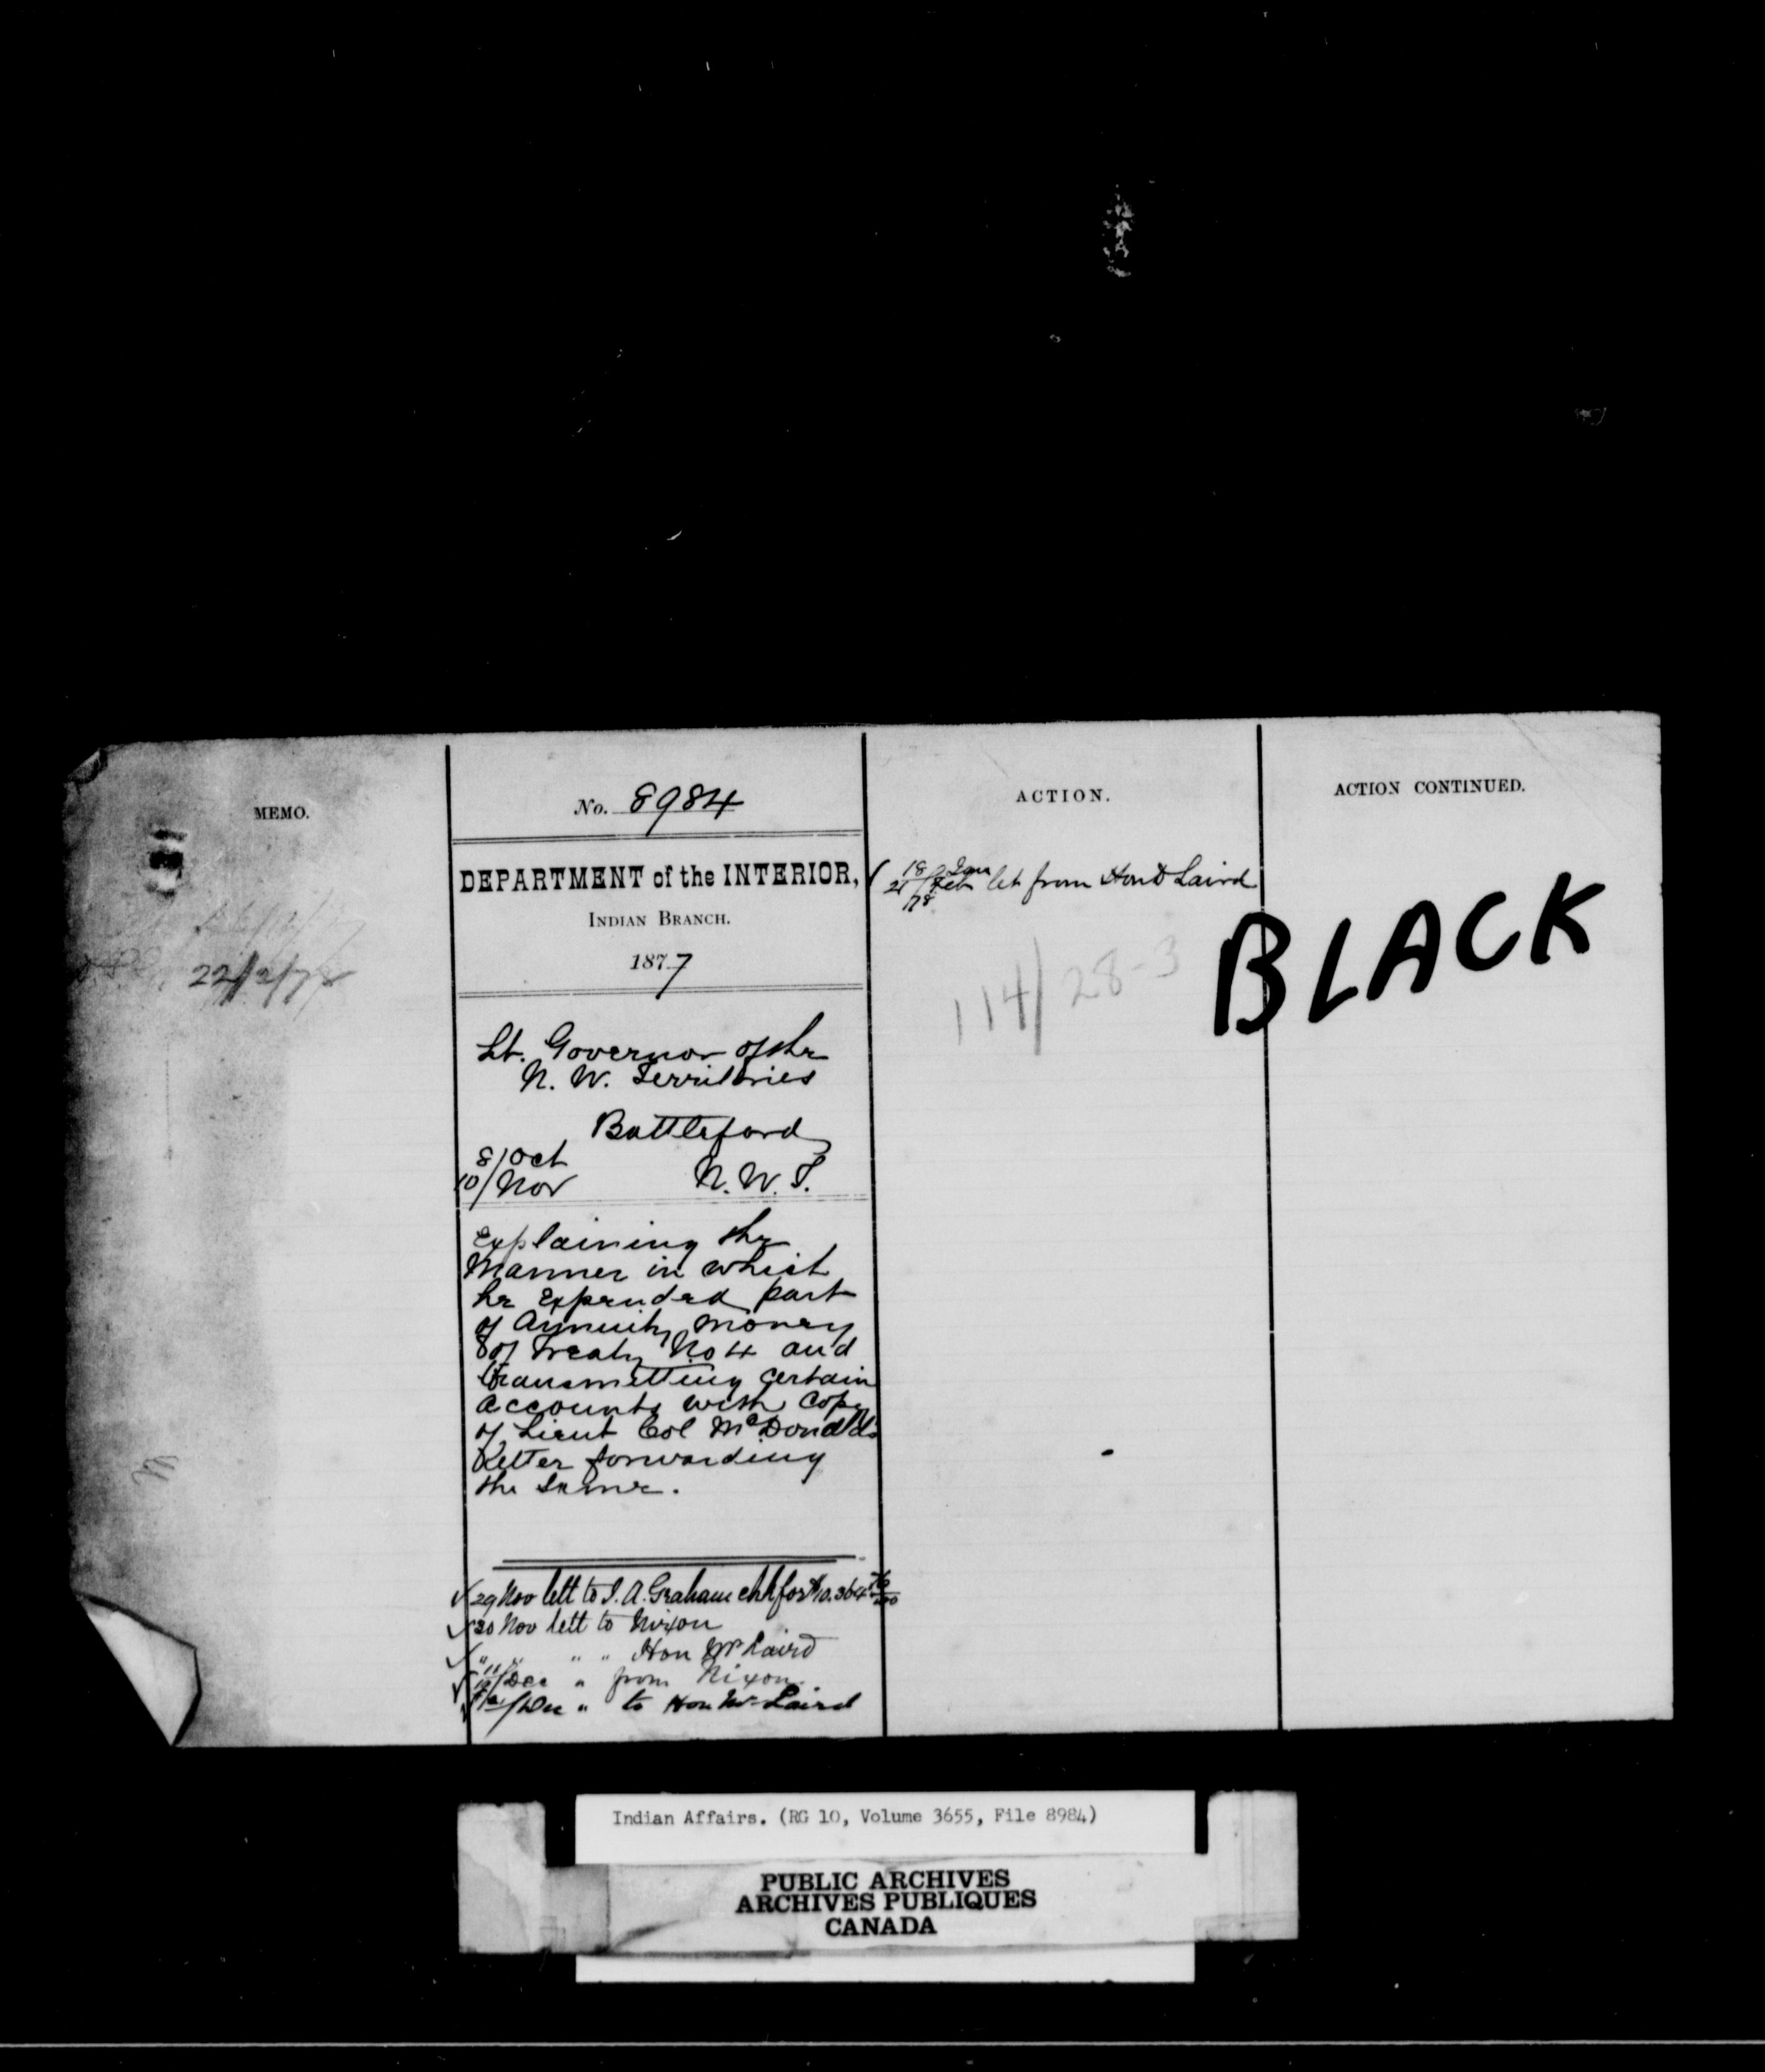 MEMO.
22/2/78
No. 8984
DEPARTMENT of the INTERIOR,
INDIAN BRANCH.
1877
Lt. Governor of the
N. W. Territories
Battleford
8/Oct
10/Nov N. W. T.
Explaining the
Manner in which
he Expended part
of Annuity money
of Treaty No 4 and
transmitting certain
accounts with Copy
of Lieut Col McDonald's
Letter forwarding
the Same.
29 Nov lett to J. A. Graham chk for $10.364
30 Nov lett to Nixon
" " " " Hon Mr Laird
/Dec " from Nixon
/Dec " to Hon Mr Laird
ACTION.
18 Jan
21/Feb let from Hon D Laird
78
114/28-3
ACTION CONTINUED.
BLACK
Indian Affairs. (RG 10, Volume 3655, File 8984)
PUBLIC ARCHIVES
ARCHIVES PUBLIQUES
CANADA